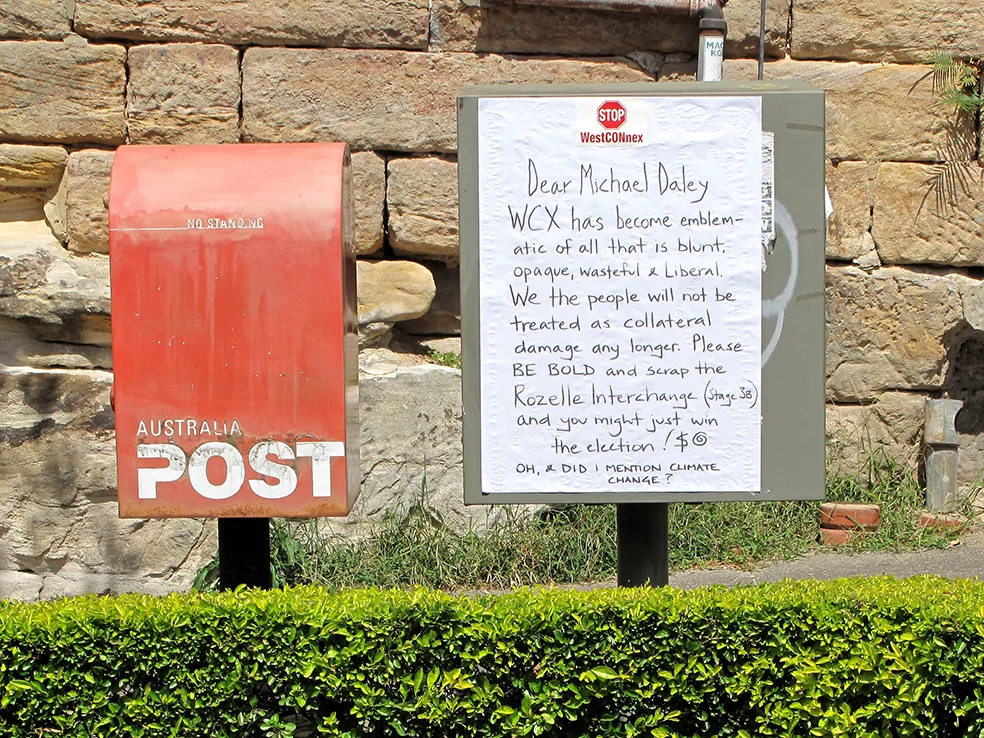 NO STANDING
AUSTRALIA
POST
MAC
KO
STOP
WestCONnex
Dear Michael Daley
WCX has become emblem-
atic of all that is blunt,
opaque, wasteful & Liberal.
We the people will not be
treated as collateral
damage any longer. Please
BE BOLD and scrap the
Rozelle Interchange (Stage 3B)
and you might just win
the election! $@
OH, & DID I MENTION CLIMATE
CHANGE?